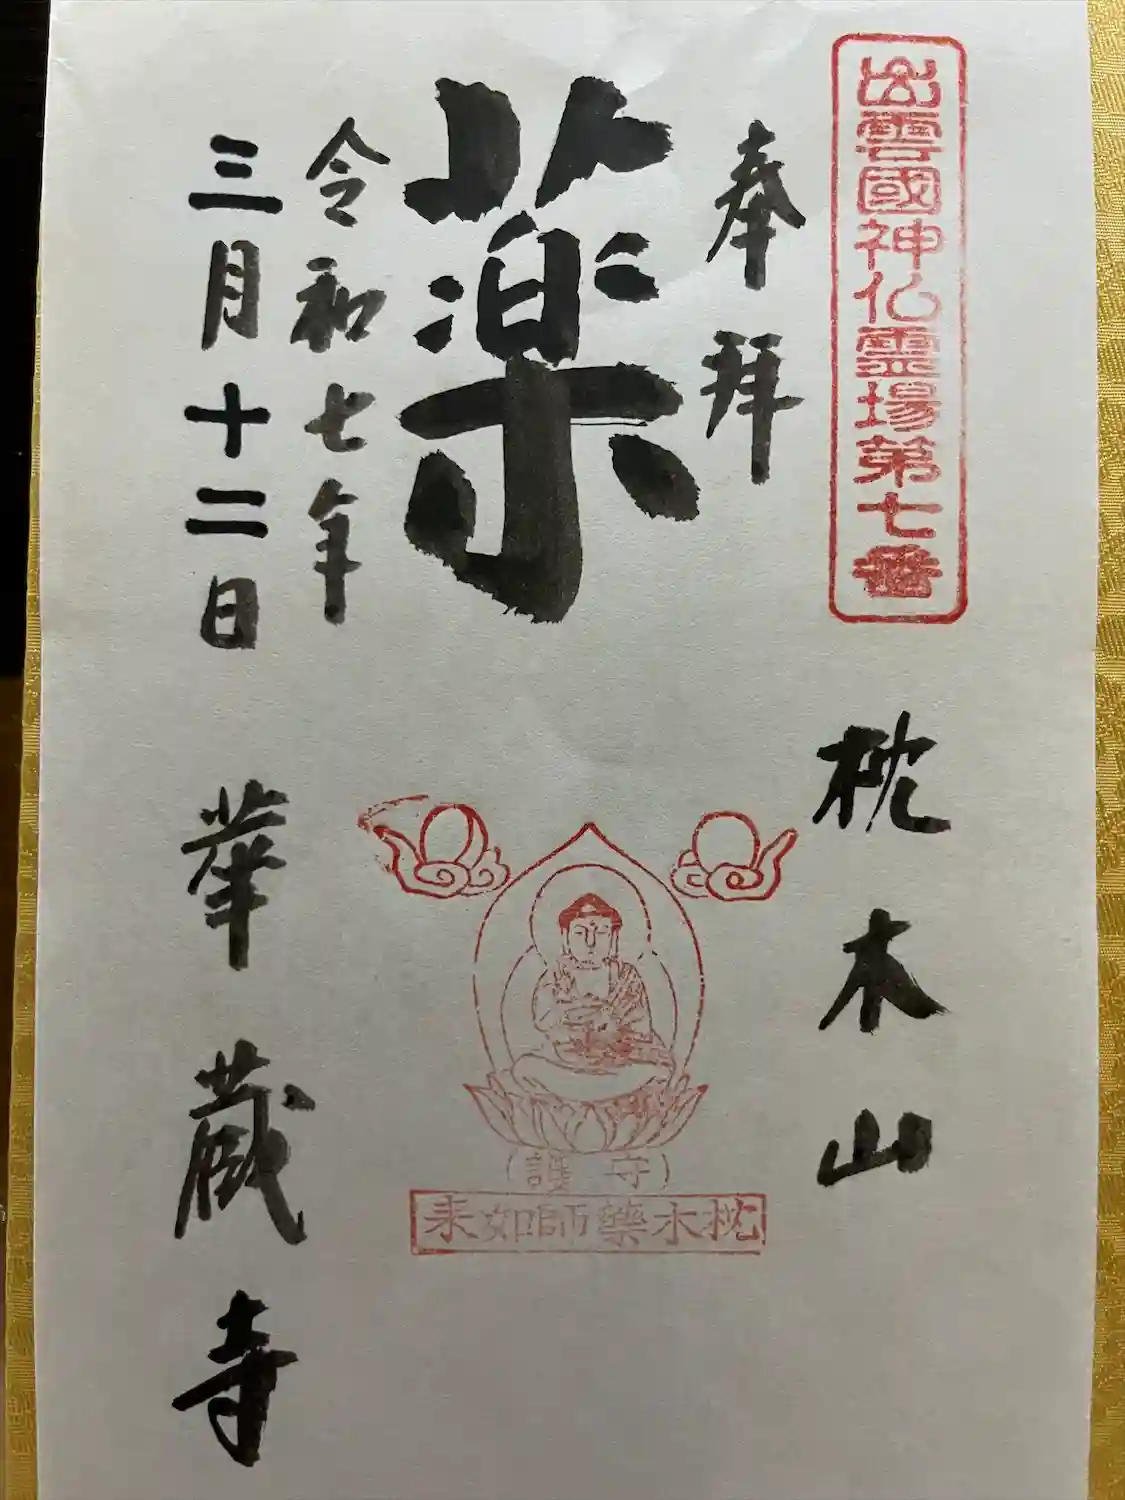 出雲國神仏霊場第七番
奉拝
枕木山
薬
令和七年
三月十二日
華蔵寺
守護
枕木藥師如来